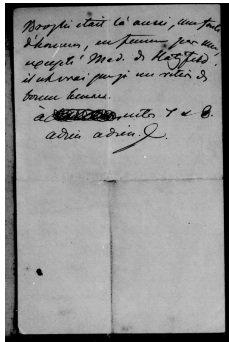 Broglie était là aussi, une foule
d'hommes, en femmes pas une
excepté Mad. de Hatzfeld
il est vrai que je me retirai de
bonne heure.
à entre 7 & 8.
adieu adieu.